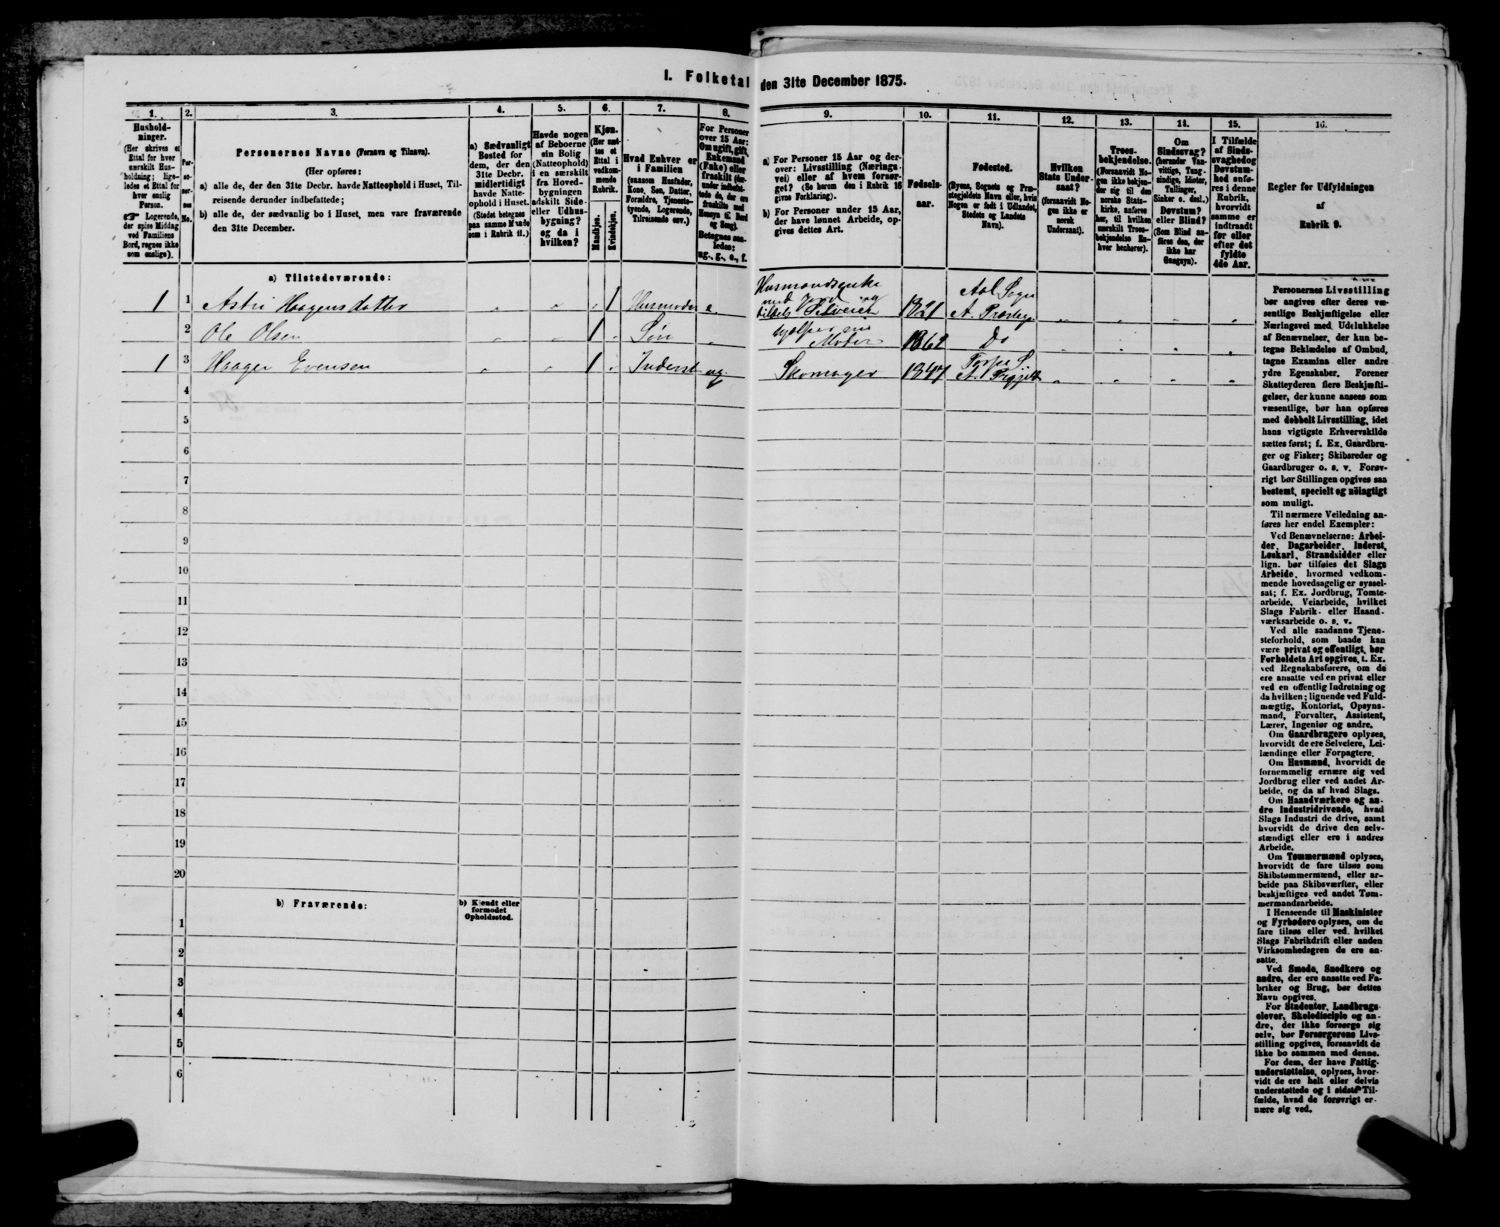 I. Folketal den 31te December 1875.
1.
Husholdninger.
(Her skrives et
Ettal for hver
særskilt Husholdning;
ligeledes et Ettal for
hver enslig
Person.
Logerende,
der spise Middag
ved Familiens
Bord, regnes ikke
som enslige).
2.
3.
Personernes Navne (Fornavn og Tilnavn).
(Her opføres:
a) alle de, der den 31te Decbr. havde Natteophold i Huset, Tilreisende derunder indbefattede;
b) alle de, der sædvanlig bo i Huset, men vare fraværende
den 31te December.
4.
a) Sædvanligt
Bosted for
dem, der den
31te Decbr.
midlertidigt
havde Natteophold
i Huset.
5.
Havde nogen
af Beboerne
sin Bolig
(Natteophold)
i en særskilt
fra Hovedbygningen
adskilt Side-
eller Udhusbygning?
og da i
hvilken?
6.
Kjøn.
Mandkjøn.
Kvindekjøn.
7.
Hvad Enhver er
i Familien
(saasom Husfader,
Kone, Søn, Datter,
Formidre, Tjenestetyende,
Logerende,
Tilreisende osv.)
8.
For Personer
over 15 Aar:
Om ugift, gift,
Enkemand
(Enke) eller
fraskilt
9.
a) For Personer 15 Aar og derover:
Livsstilling (Næringsvei)
eller af hvem forsørget?
(Se herom den i Rubrik 16
givne Forklaring).
b) For Personer under 15 Aar,
der have lønnet Arbeide, opgives
dettes Art.
10.
Fødselsaar.
11.
Fødested.
(Byens, Sognets og Præstegjeldets
Navn eller, hvis
Nogen er født i Udlandet,
Stedets og Landets
Navn).
12.
Hvilken
Stats Undersaat?
(forsaavidt Nogen
ikke er
norsk
Undersaat).
13.
Troesbekjendelse.
14.
Om
Sindssvag?
Døvstum?
eller Blind?
15.
I Tilfælde
af Sindssvaghed
og
Døvstumhed
16.
Regler for Udfyldningen
af
Rubrik 9.
a) Tilstedeværende:
1 1 Astri Haagensdatter 1 Husmoder e. Husmandsenke med Jord 1821 Aal Sogn A. Præstegj
2 Ole Olsen 1 Søn hjælper sin Moder 1862 Do
1 3 Haagen Evensen 1 Inderst ug. Skomager 1847 Torpe S A. Prgjeld
4
5
6
7
8
9
10
11
12
13
14
15
16
17
18
19
20
b) Fraværende:
b) Kjendt eller
formodet
Opholdssted.
1
2
3
4
5
6
Personernes Livsstilling
bør angives efter deres væsentlige
Beskjæftigelse eller
Næringsvei med Udelukkelse
af Benævnelser, der kun betegne
Beklædelse af Ombud,
tagne Examina eller andre
ydre Egenskaber. Forener
Skatteyderen flere Beskjæftigelser,
der kunne ansees som
væsentlige, bør han opføres
med dobbelt Livsstilling, idet
hans vigtigste Erhvervskilde
sættes først; f. Ex. Gaardbruger
og Fisker; Skibsreder og
Gaardbruger o. s. v. Forøvrigt
bør Stillingen opgives saa
bestemt, specielt og nøiagtigt
som muligt.
Til nærmere Veiledning anføres
her endel Exempler:
Ved Benævnelserne: Arbeider,
Dagarbeider, Inderst,
Løskarl, Strandsidder eller
lign. bør tilføies det Slags
Arbeide, hvormed vedkommende
hovedsagelig er sysselsat;
f. Ex. Jordbrug, Tomtearbeide,
Veiarbeide, hvilket
Slags Fabrik- eller Haandværksarbeide
o. s. v.
Ved alle saadanne Tjenesteforhold,
som baade kan
være privat og offentligt, bør
Forholdets Art opgives, t. Ex.
ved Regnskabsførere, om de
ere ansatte ved en privat eller
ved en offentlig Indretning og
da hvilken; lignende ved Fuldmægtig,
Kontorist, Opsynsmand,
Forvalter, Assistent,
Lærer, Ingeniør og andre.
Om Gaardbrugere oplyses,
hvorvidt de ere Selveiere, Leilændinge
eller Forpagtere.
Om Husmænd, hvorvidt de
fornemmelig ernære sig ved
Jordbrug eller ved andet Arbeide,
og da af hvad Slags.
Om Haandværkere og andre
Industridrivende, hvad
Slags Industri de drive, samt
hvorvidt de drive den selvstændigt
eller ere i andres
Arbeide.
Om Tømmermænd oplyses,
hvorvidt de fare tilsøs som
Skibstømmermænd, eller arbeide
paa Skibsværfter, eller
beskjæftiges ved andet Tømmermandsarbeide.
I Henseende til Maskinister
og Fyrbødere oplyses, om de
fare tilsøs eller ved hvilket
Slags Fabrikdrift eller anden
Virksomhed de ere ansatte.
Ved Smede, Snedkere og
andre, der ere ansatte ved Fabriker
og Brug, bør dettes
Navn opgives.
For Studenter, Landbrugselever,
Skoledisciple og andre,
der ikke forsørge sig
selv, bør Forsørgerens Livsstilling
opgives, forsaavidt de
ikke bo sammen med denne.
For dem, der have Fattigunderstøttelse,
oplyses, hvorvidt
de ere helt eller delvis
understøttede og i sidste Tilfælde,
hvad de forøvrigt ernære
sig ved.